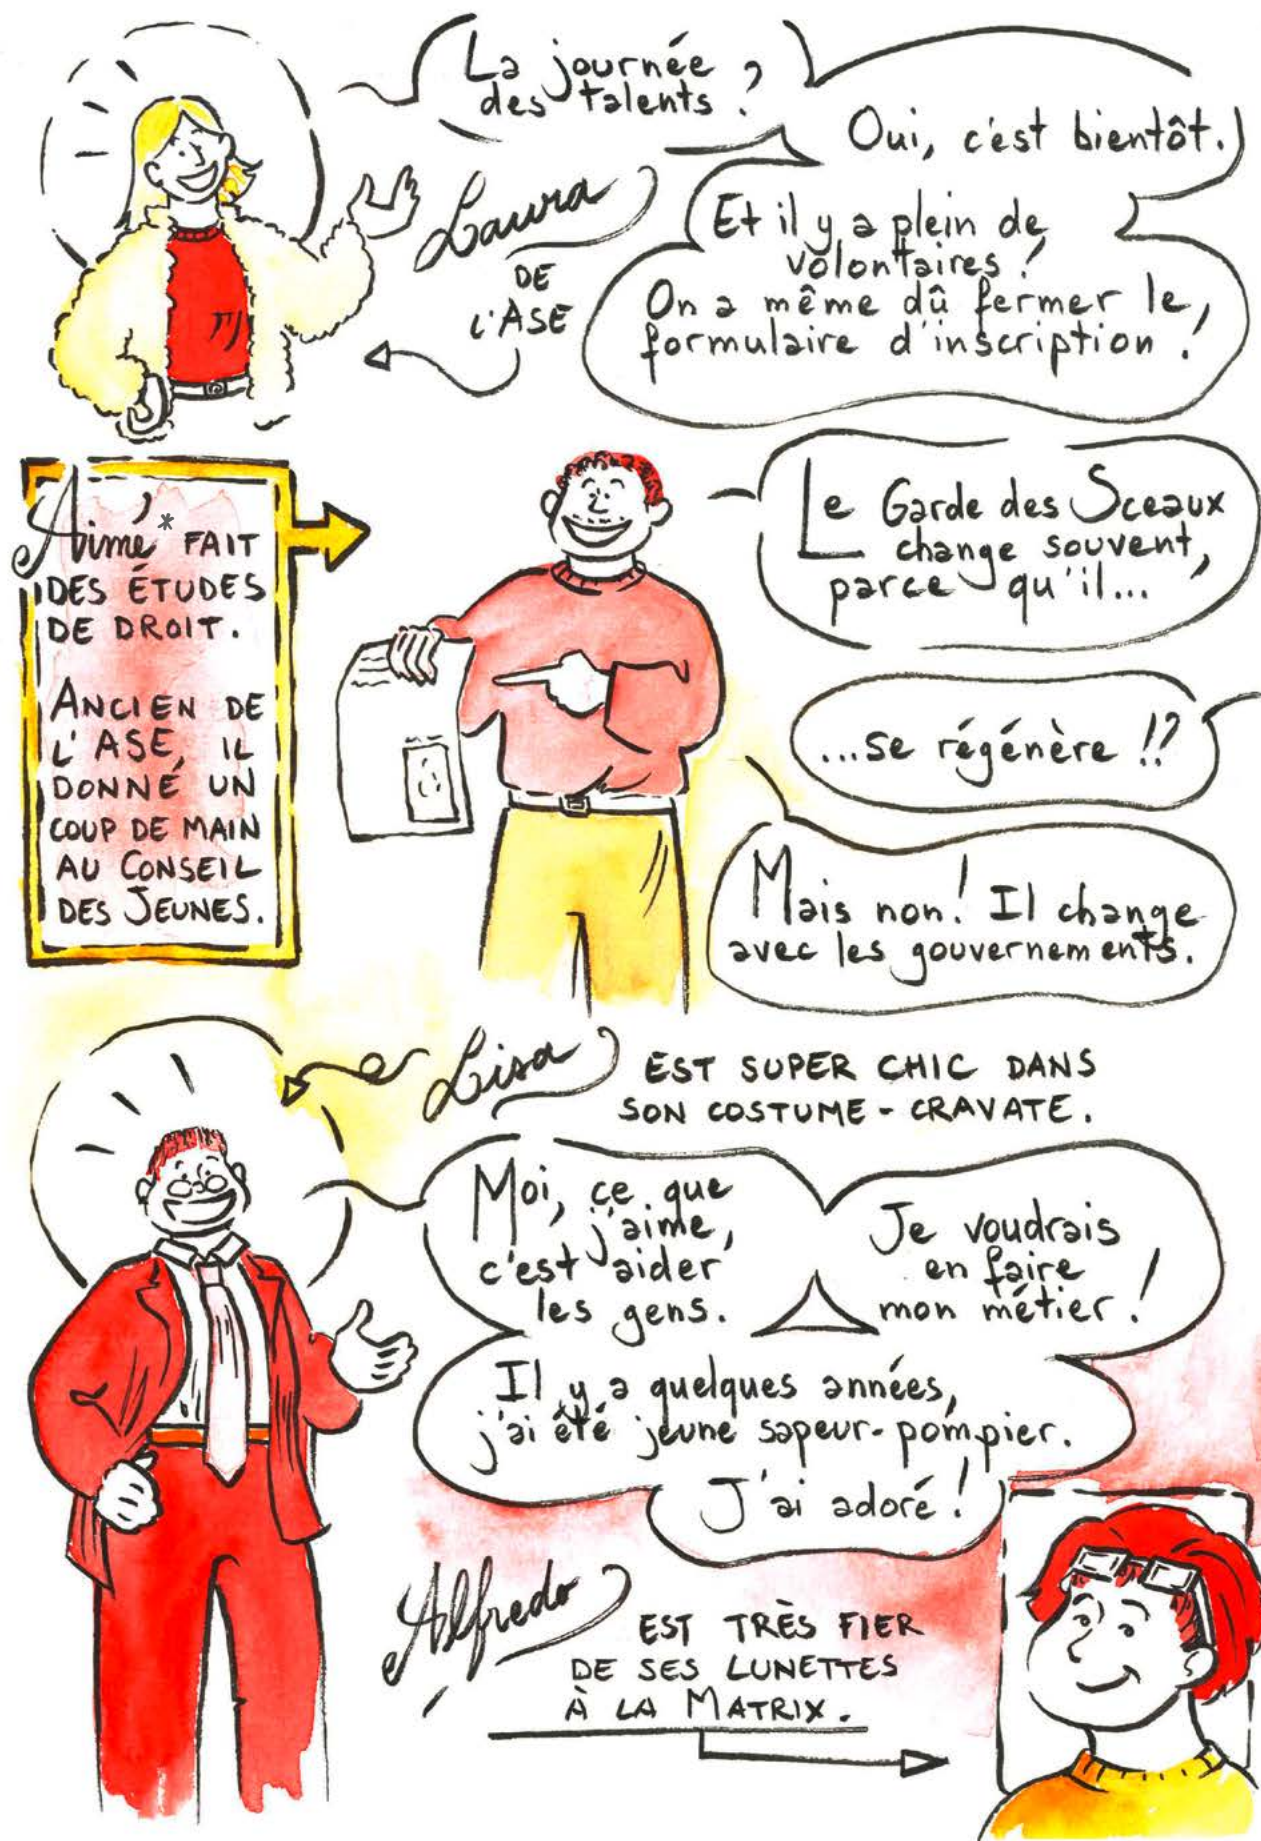 La journée
des talents ?
Oui, c'est bientôt.
Et il y a plein de
volontaires !
On a même dû fermer le
formulaire d'inscription !
Laura
DE
L'ASE
Aimé* FAIT
DES ÉTUDES
DE DROIT.
ANCIEN DE
L'ASE, IL
DONNE UN
COUP DE MAIN
AU CONSEIL
DES JEUNES.
Le Garde des Sceaux
change souvent,
parce qu'il...
...se régénère !?
Mais non ! Il change
avec les gouvernements.
Lisa EST SUPER CHIC DANS
SON COSTUME-CRAVATE.
Moi, ce que
j'aime,
c'est aider
les gens.
Je voudrais
en faire
mon métier !
Il y a quelques années,
j'ai été jeune sapeur-pompier.
J'ai adoré !
Alfredo EST TRÈS FIER
DE SES LUNETTES
À LA MATRIX.